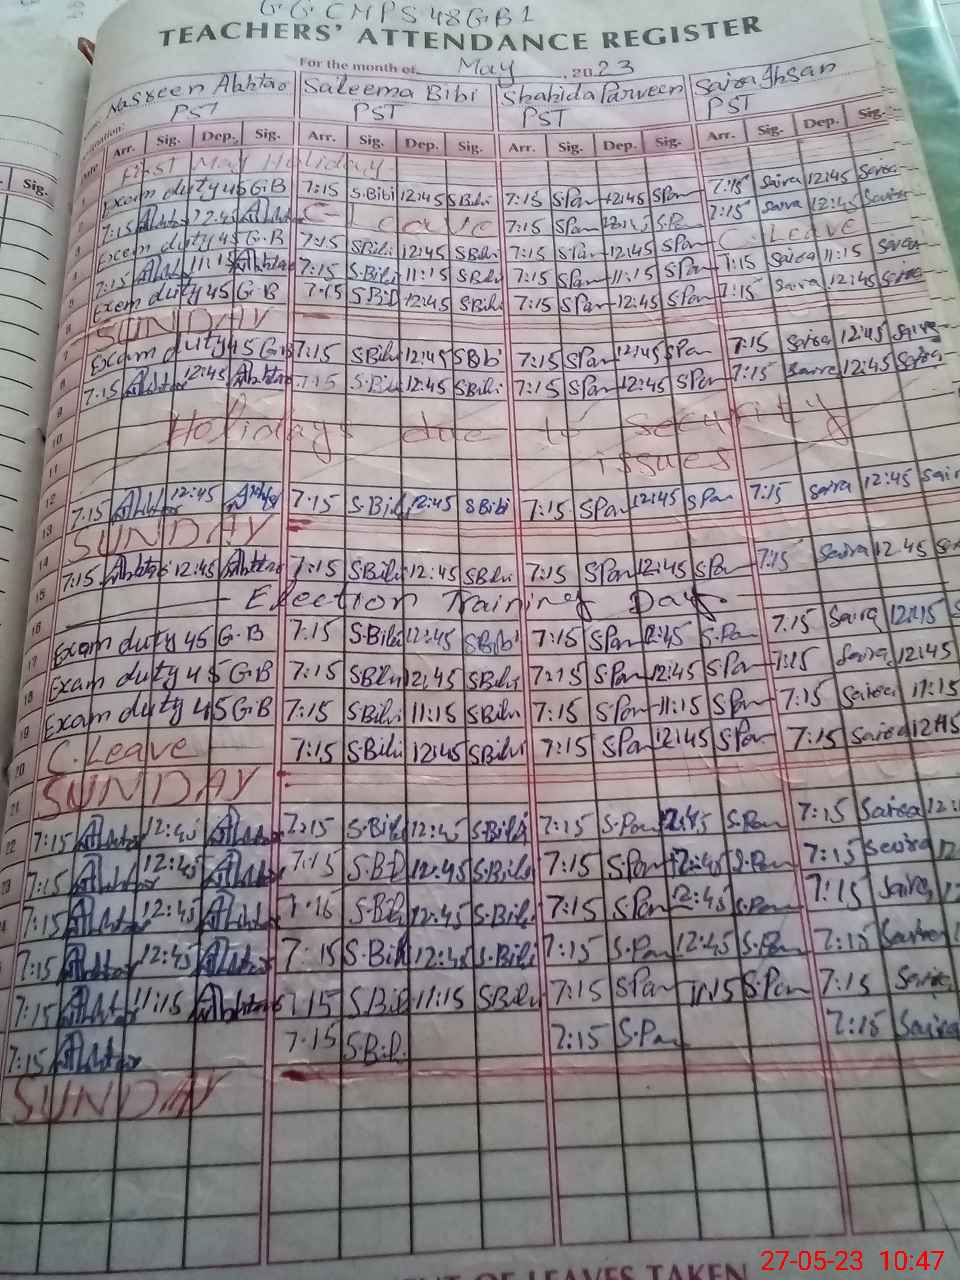 GGCMPS 48 GB 1
TEACHERS' ATTENDANCE REGISTER
For the month of May, 2023
Nasreen Akhtar Saleema Bibi Shahida Parveen Saira Ihsan
PST PST PST PST
Arr. Sig. Dep. Sig. Arr. Sig. Dep. Sig. Arr. Sig. Dep. Sig. Arr. Sig. Dep. Sig.
First May Holiday
Exam duty 45 G.B 7:15 S.Bibi 12:45 SBibi 7:15 S.Par 12:45 S.Par 7:15 Saira 12:45 Saira
7:15 Akhtar 12:45 Akhtar C-Leave 7:15 S.Par 12:45 S.Par 7:15 Saira 12:45 Saira
Excem duty 45 G.B 7:15 SBibi 12:45 SBibi 7:15 S.Par 12:45 S.Par C.Leave
7:15 Akhtar 11:15 Akhtar 7:15 S.Bibi 11:15 SBibi 7:15 S.Par 11:15 S.Par 7:15 Saira 11:15 Saira
Exem duty 45 G.B 7:15 S.Bibi 12:45 SBibi 7:15 S.Par 12:45 S.Par 7:15 Saira 12:45 Saira
SUNDAY
Exam duty 45 G.B 7:15 SBibi 12:45 SBibi 7:15 SPar 12:45 SPar 7:15 Saira 12:45 Saira
7:15 Akhtar 12:45 Akhtar 7:15 S.Bibi 12:45 SBibi 7:15 SPar 12:45 SPar 7:15 Saira 12:45 Saira
Holidays due to security
issues
12 7:15 Akhtar 12:45 Akhtar 7:15 S.Bibi 12:45 SBibi 7:15 SPar 12:45 SPar 7:15 Saira 12:45 Sair
13 SUNDAY
14 7:15 Akhtar 12:45 Akhtar 7:15 SBibi 12:45 SBibi 7:15 SPar 12:45 S.Par 7:15 Saira 12.45
15 Election Training Day.
16 Exam duty 45 G.B 7:15 S.Bibi 12:45 SBibi 7:15 S.Par 12:45 S.Par 7:15 Saira 12:15
17 Exam duty 45 G.B 7:15 SBibi 12:45 SBibi 7:15 S.Par 12:45 S.Par 7:15 Saira 12:45
18 Exam duty 45 G.B 7:15 SBibi 11:15 SBibi 7:15 S.Par 11:15 S.Par 7:15 Saira 11:15
19 C.Leave 7:15 S.Bibi 12:45 SBibi 7:15 SPar 12:45 S.Par 7:15 Saira 12:45
20 SUNDAY
21 7:15 Akhtar 12:45 Akhtar 7:15 S.Bibi 12:45 S.Bibi 7:15 S.Par 12:45 S.Par 7:15 Saira 12:
22 7:15 Akhtar 12:45 Akhtar 7:15 S.Bibi 12:45 S.Bibi 7:15 S.Par 12:45 S.Par 7:15 Saira 12
23 7:15 Akhtar 12:45 Akhtar 7:15 S.Bibi 12:45 S.Bibi 7:15 S.Par 12:45 S.Par 7:15 Saira 12
7:15 Akhtar 12:45 Akhtar 7:15 S.Bibi 12:45 S.Bibi 7:15 S.Par 12:45 S.Par 7:15 Saira
7:15 Akhtar 11:15 Akhtar 7:15 S.Bibi 11:15 SBibi 7:15 SPar 11:15 S.Par 7:15 Saira
7:15 Akhtar 7:15 S.Bibi 7:15 S.Par 7:15 Saira
SUNDAY
OF LEAVES TAKEN
27-05-23 10:47